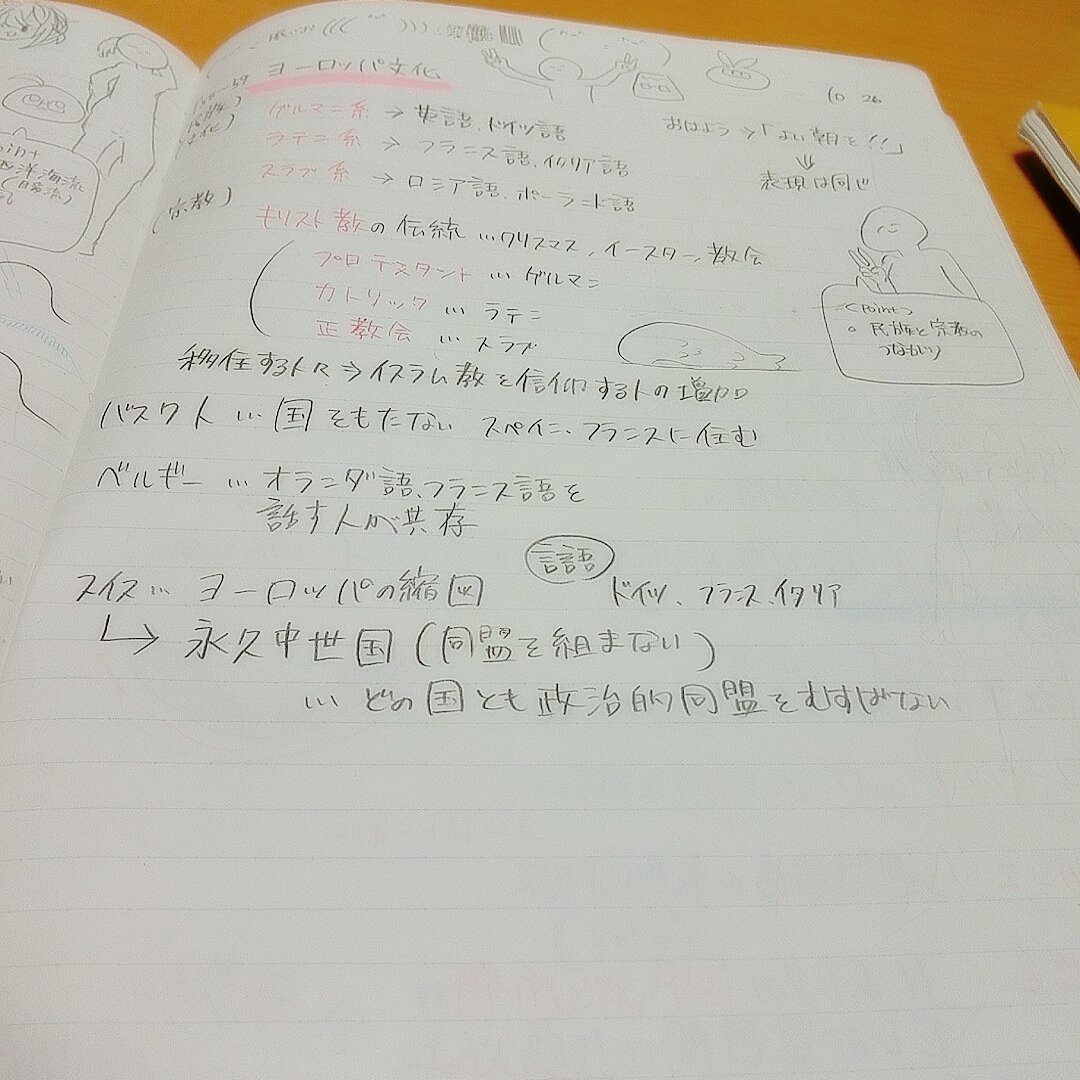 ヨーロッパ文化
10 26
ゲルマン系 → 英語、ドイツ語
おはよう →「よい朝を!!」
ラテン系 → フランス語、イタリア語
⇓
表現は同じ
スラブ系 → ロシア語、ポーランド語
宗教)
キリスト教の伝統 … クリスマス、イースター、教会
プロテスタント … ゲルマン
カトリック … ラテン
正教会 … スラブ
<Point>
。民族と宗教の
つながり
移住する人々 ⇒ イスラム教を信仰する人の増加
バスク人 … 国をもたない スペイン、フランスに住む
ベルギー … オランダ語、フランス語を
話す人が共存
スイス … ヨーロッパの縮図
言語
ドイツ、フランス、イタリア
↳ 永久中世国 (同盟を組まない)
… どの国とも政治的同盟をむすばない
Point
西洋海流